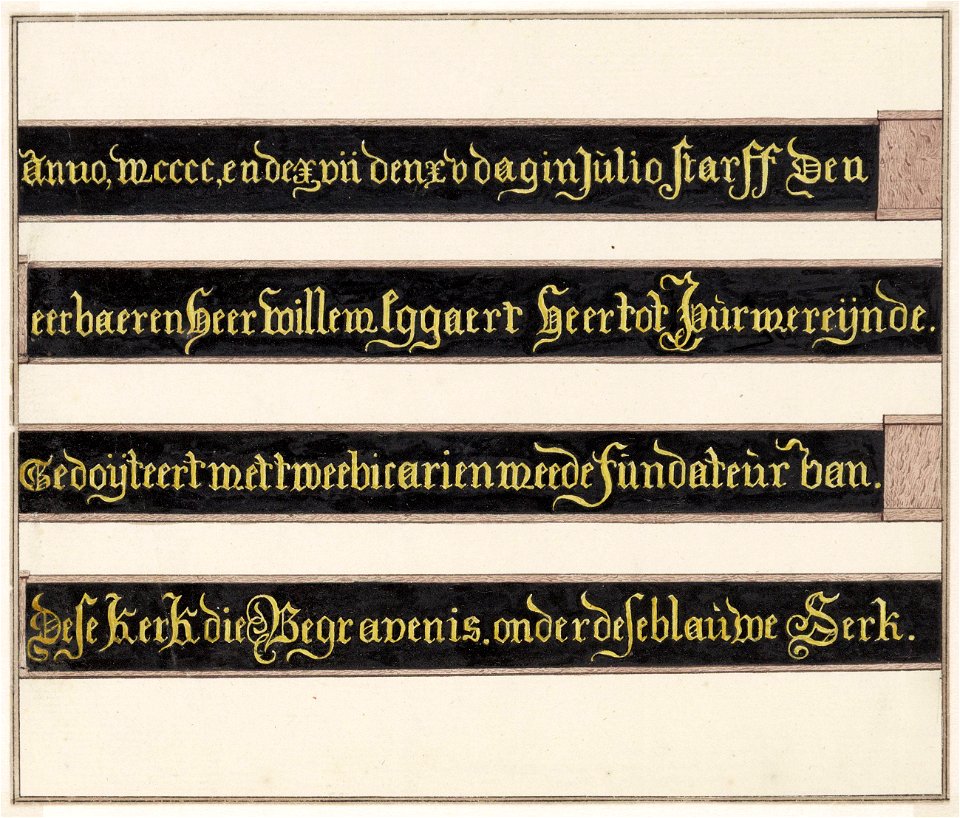 Anno, Mcccc, ende xvii den xv dag in Jùlio starff Den
eerbaeren Heer Willem Eggaert Heer tot Pùrmereijnde.
Gedoijteert met twee bicarien meede fùndateùr van.
Dese Kerk die Begravenis. onder dese blaùwe Serk.